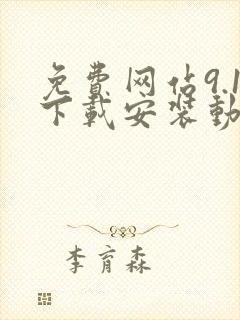 免费网站9.1
下载安装动
李育森